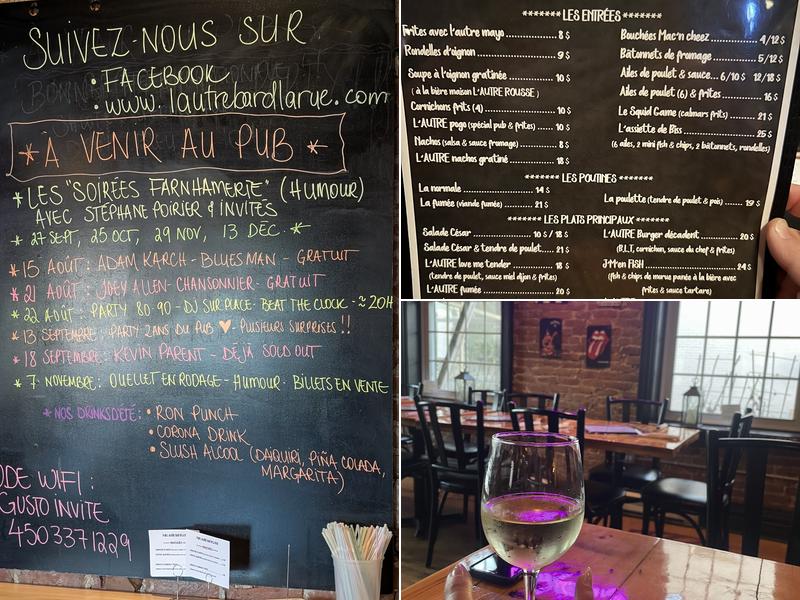 SUIVEZ-NOUS SUR
• FACEBOOK
• www.lautrebardlarue.com
* À VENIR AU PUB *
* LES "SOIRÉES FARNHAMERIE" (HUMOUR)
AVEC STÉPHANE POIRIER & INVITÉS
* 27 SEPT, 25 OCT, 29 NOV, 13 DEC *
* 15 AOÛT: ADAM KARCH - BLUESMAN - GRATUIT
* 21 AOÛT: JOEY ALLEN - CHANSONNIER - GRATUIT
* 22 AOÛT: PARTY 80-90 - DJ SUR PLACE - BEAT THE CLOCK - ≈ 20H
* 13 SEPTEMBRE: PARTY 2ANS DU PUB ♥ - PLUSIEURS SURPRISES !!
* 18 SEPTEMBRE: KEVIN PARENT - DÉJÀ SOLD OUT
* 7 NOVEMBRE: OUELLET EN RODAGE - HUMOUR - BILLETS EN VENTE
* NOS DRINKS D'ÉTÉ: • RON PUNCH
• CORONA DRINK
• SLUSH ALCOOL (DAIQUIRI, PIÑA COLADA,
MARGARITA)
ODE WIFI:
GUSTO INVITE
4503371229
******* LES ENTRÉES *******
Frites avec l'autre mayo 8 $
Rondelles d'oignon 9 $
Soupe à l'oignon gratinée 10 $
( à la bière maison L'AUTRE ROUSSE )
Cornichons frits (4) 10 $
L'AUTRE pogo (spécial pub & frites) 10 $
Nachos (salsa & sauce fromage) 8 $
L'AUTRE nachos gratiné 18 $
Bouchées Mac'n cheez 4/12 $
Bâtonnets de fromage 5/12 $
Ailes de poulet & sauce... 6/10 $ 12/18 $
Ailes de poulet (6) & frites 16 $
Le Squid Game (calmars frits) 21 $
L'assiette de Biss 25 $
(6 ailes, 2 mini fish & chips, 2 bâtonnets, rondelles)
******* LES POUTINES *******
La normale 14 $
La fumée (viande fumée) 21 $
La poulette (tendre de poulet & pois) 19 $
******* LES PLATS PRINCIPAUX *******
Salade César 10 $ / 18 $
Salade César & tendre de poulet 21 $
L'AUTRE love me tender 18 $
(tendre de poulet, sauce miel dijon & frites)
L'AUTRE fumée 20 $
L'AUTRE Burger décadent 20 $
(B.L.T, cornichon, sauce du chef & frites)
J-M'en FISH 24 $
(fish & chips de morue panée à la bière avec
frites & sauce tartare)